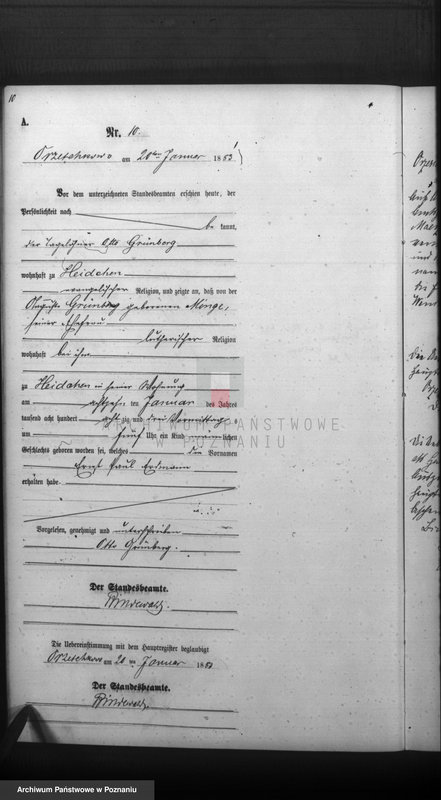 10
A.
Nr. 10.
Orzeschkowo am 20ten Januar 1883
Vor dem unterzeichneten Standesbeamten erschien heute, der
Persönlichkeit nach
be kannt,
der Tagelöhner Otto Grünberg
wohnhaft zu Heidchen
evangelischer Religion, und zeigte an, daß von der
Auguste Grünberg geborenen Minge,
seiner Ehefrau
lutherischer Religion
wohnhaft bei ihm
zu Heidchen in seiner Wohnung
am achtzehn ten Januar des Jahres
tausend acht hundert achtzig und drei Vormittags
um fünf Uhr ein Kind männlichen
Geschlechts geboren worden sei, welches den Vornamen
Ernst Paul Erdmann
erhalten habe.
Vorgelesen, genehmigt und unterschrieben
Otto Grünberg.
Der Standesbeamte.
Die Uebereinstimmung mit dem Hauptregister beglaubigt
Orzeschkowo am 20 ten Januar 1883
Der Standesbeamte.
ARCHIWUM PAŃSTWOWE
W POZNANIU
Archiwum Państwowe w Poznaniu